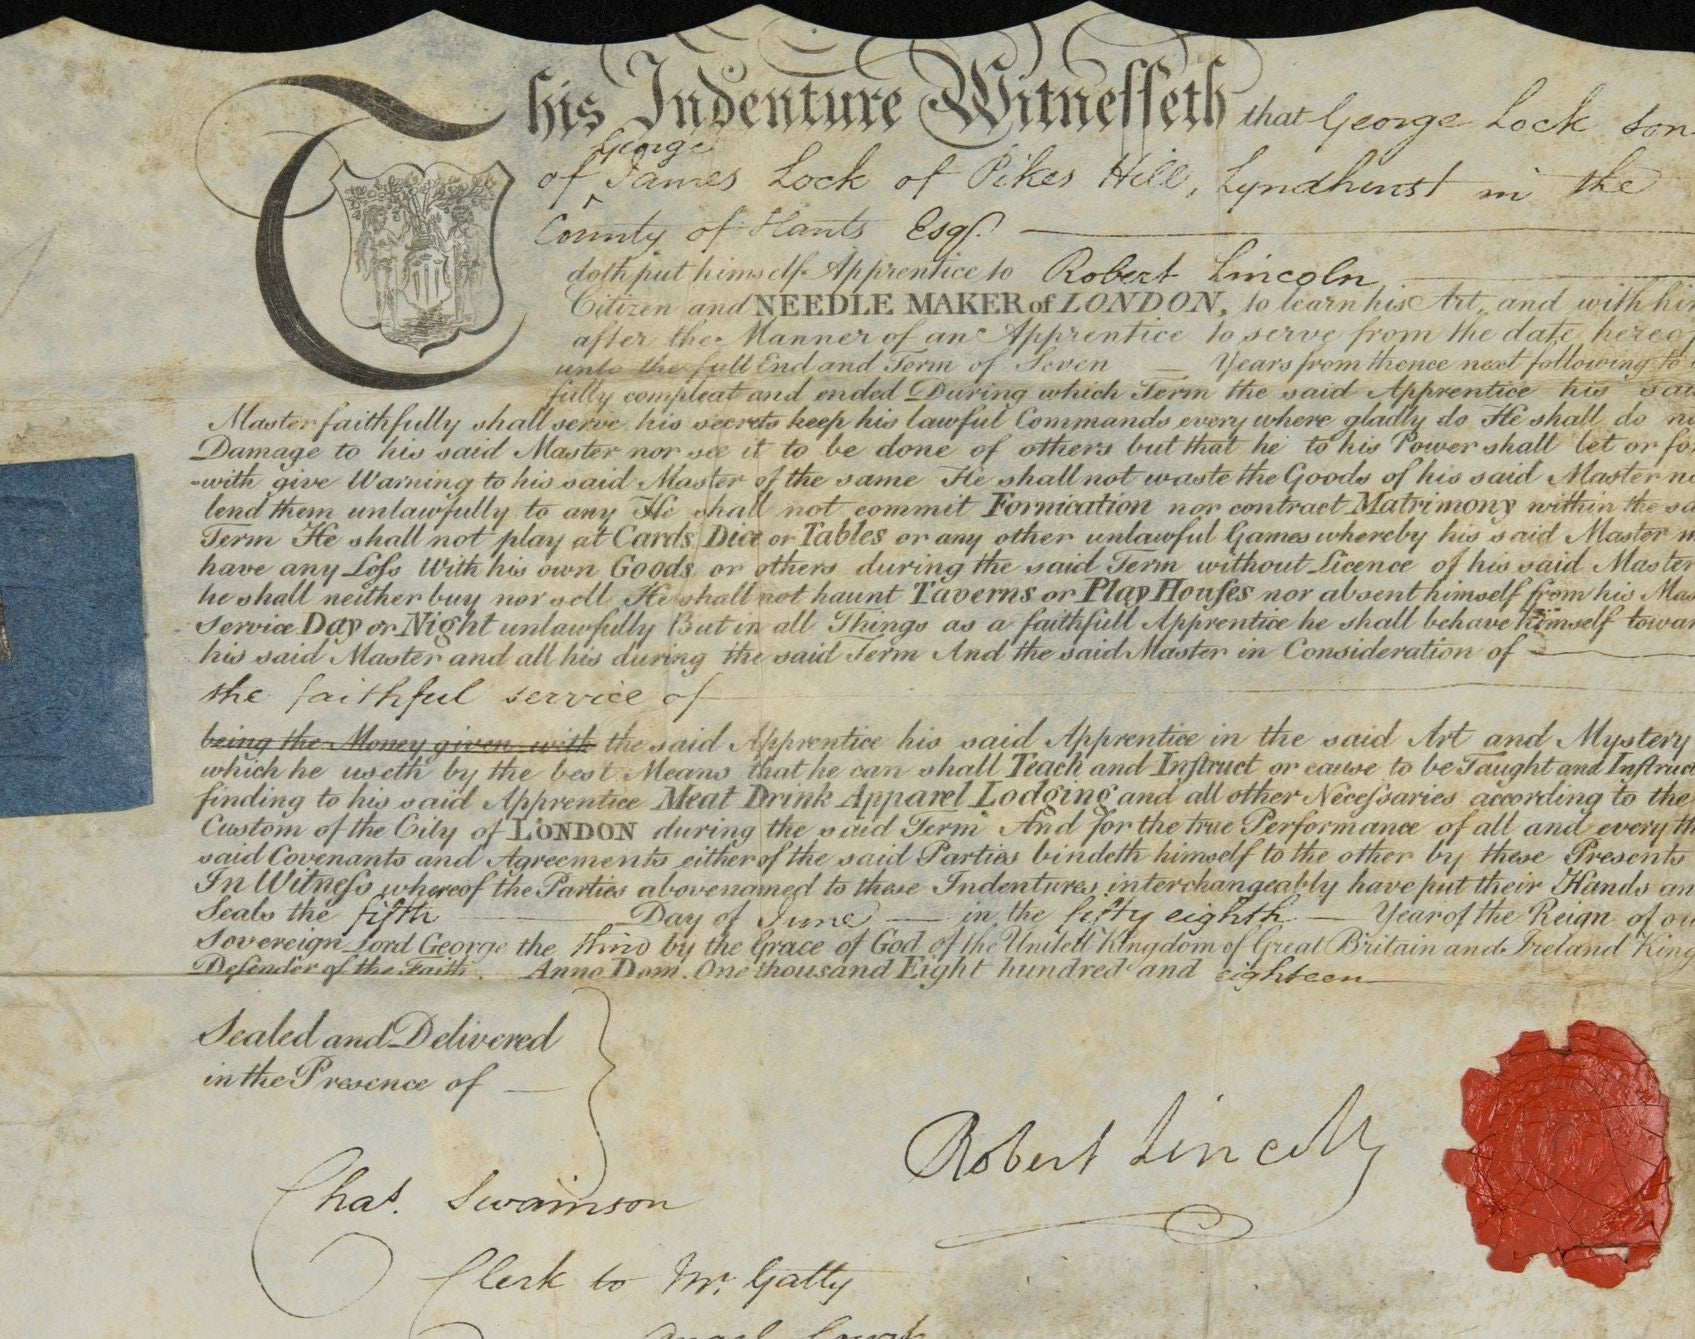 This Indenture Witnesseth that George Lock son
George
of James Lock of Pikes Hill, Lyndhurst in the
County of Hants Esqr.
doth put himself Apprentice to Robert Lincoln
Citizen and NEEDLE MAKER of LONDON, to learn his Art, and with him
after the Manner of an Apprentice to serve from the date hereof
unto the full End and Term of Seven Years from thence next following to
fully compleat and ended During which Term the said Apprentice his said
Master faithfully shall serve his secrets keep his lawful Commands every where gladly do He shall do no
Damage to his said Master nor see it to be done of others but that he to his Power shall let or for
-with give Warning to his said Master of the same He shall not waste the Goods of his said Master no
lend them unlawfully to any He shall not commit Fornication nor contract Matrimony within the sa
Term He shall not play at Cards Dice or Tables or any other unlawful Games whereby his said Master m
have any Loss With his own Goods or others during the said Term without Licence of his said Master
he shall neither buy nor sell He shall not haunt Taverns or Play Houses nor absent himself from his Mas
Service Day or Night unlawfully But in all Things as a faithfull Apprentice he shall behave himself towar
his said Master and all his during the said Term And the said Master in Consideration of
the faithful service of
being the Money given with the said Apprentice his said Apprentice in the said Art and Mystery
which he useth by the best Means that he can shall Teach and Instruct or cause to be Taught and Instruc
finding to his said Apprentice Meat Drink Apparel Lodging and all other Necessaries according to the
Custom of the City of LONDON during the said Term And for the true Performance of all and every th
said Covenants and Agreements either of the said Parties bindeth himself to the other by these Presents
In Witness whereof the Parties abovenamed to these Indentures interchangeably have put their Hands an
Seals the fifth Day of June in the fifty eighth Year of the Reign of ou
Sovereign Lord George the third by the Grace of God of the United Kingdom of Great Britain and Ireland King
Defender of the Faith. Anno Dom. One thousand Eight hundred and eighteen
Sealed and Delivered
in the Presence of
Robert Lincoln
Chas. Swainson
Clerk to Mr. Gatty
Angel Court